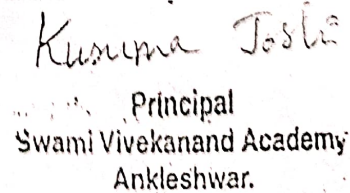 Kusuma Joshi
Principal
Swami Vivekanand Academy
Ankleshwar.